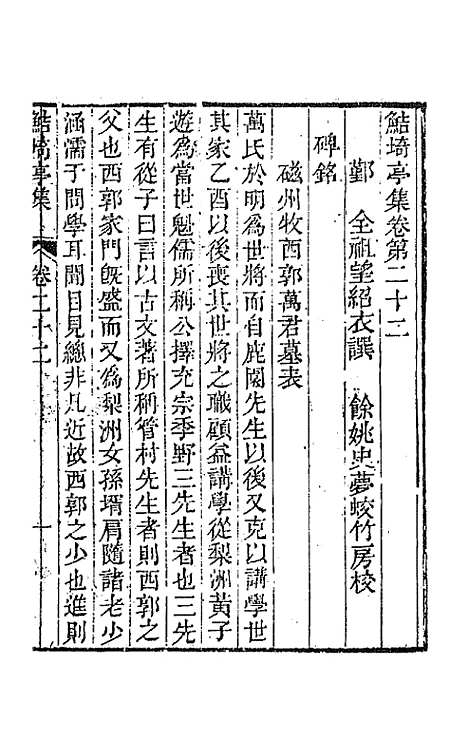 鮚埼亭集卷第二十二
鄞　全祖望紹衣譔　餘姚史夢蛟竹房校
碑銘
磁州牧西郭萬君墓表
萬氏於明為世將而自鹿園先生以後又克以講學世
其家乙酉以後喪其世將之職顧益講學從梨洲黃子
遊為當世魁儒所稱公擇充宗季野三先生者也三先
生有從子曰言以古文著所稱管村先生者則西郭之
父也西郭家門旣盛而又為梨洲女孫壻肩隨諸老少
涵濡于問學耳聞目見總非凡近故西郭之少也進則
鮚埼亭集　卷二十二　一